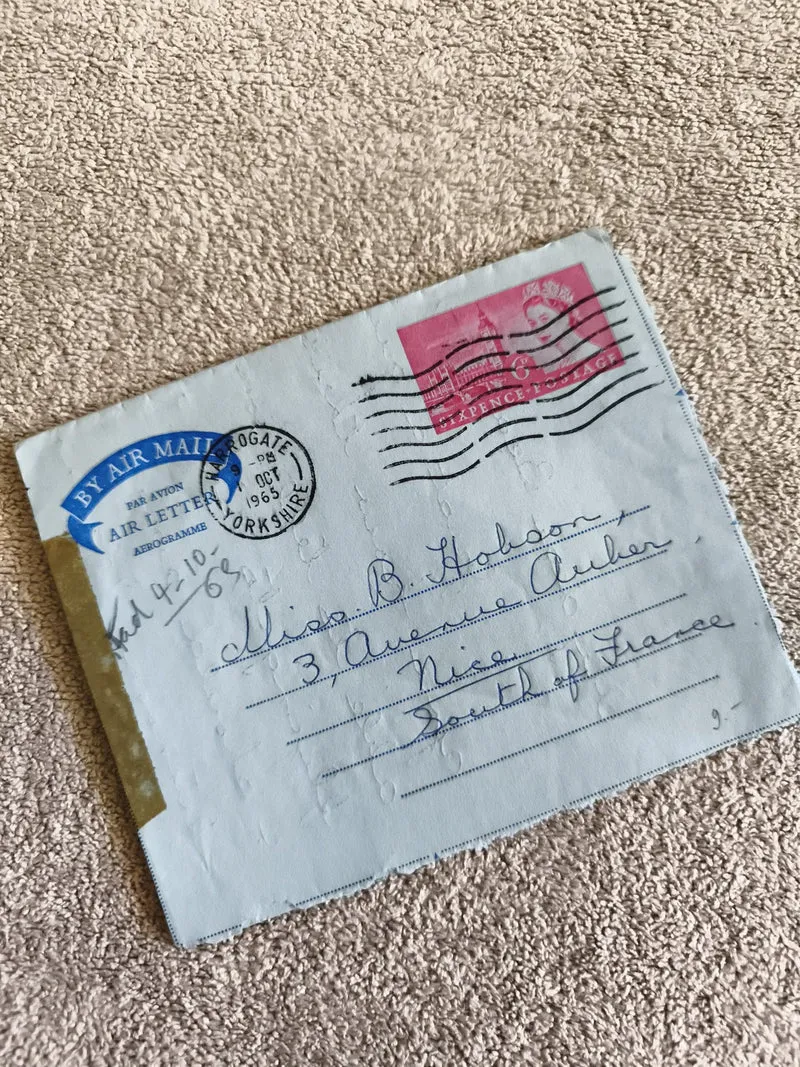 6D
SIXPENCE·POSTAGE
BY AIR MAIL
PAR AVION
AIR LETTER
AEROGRAMME
HARROGATE
9 - PM
1 OCT
1965
YORKSHIRE
4-10-
65
Miss. B. Hobson,
3, Avenue Auber.
Nice.
South of France
9.-